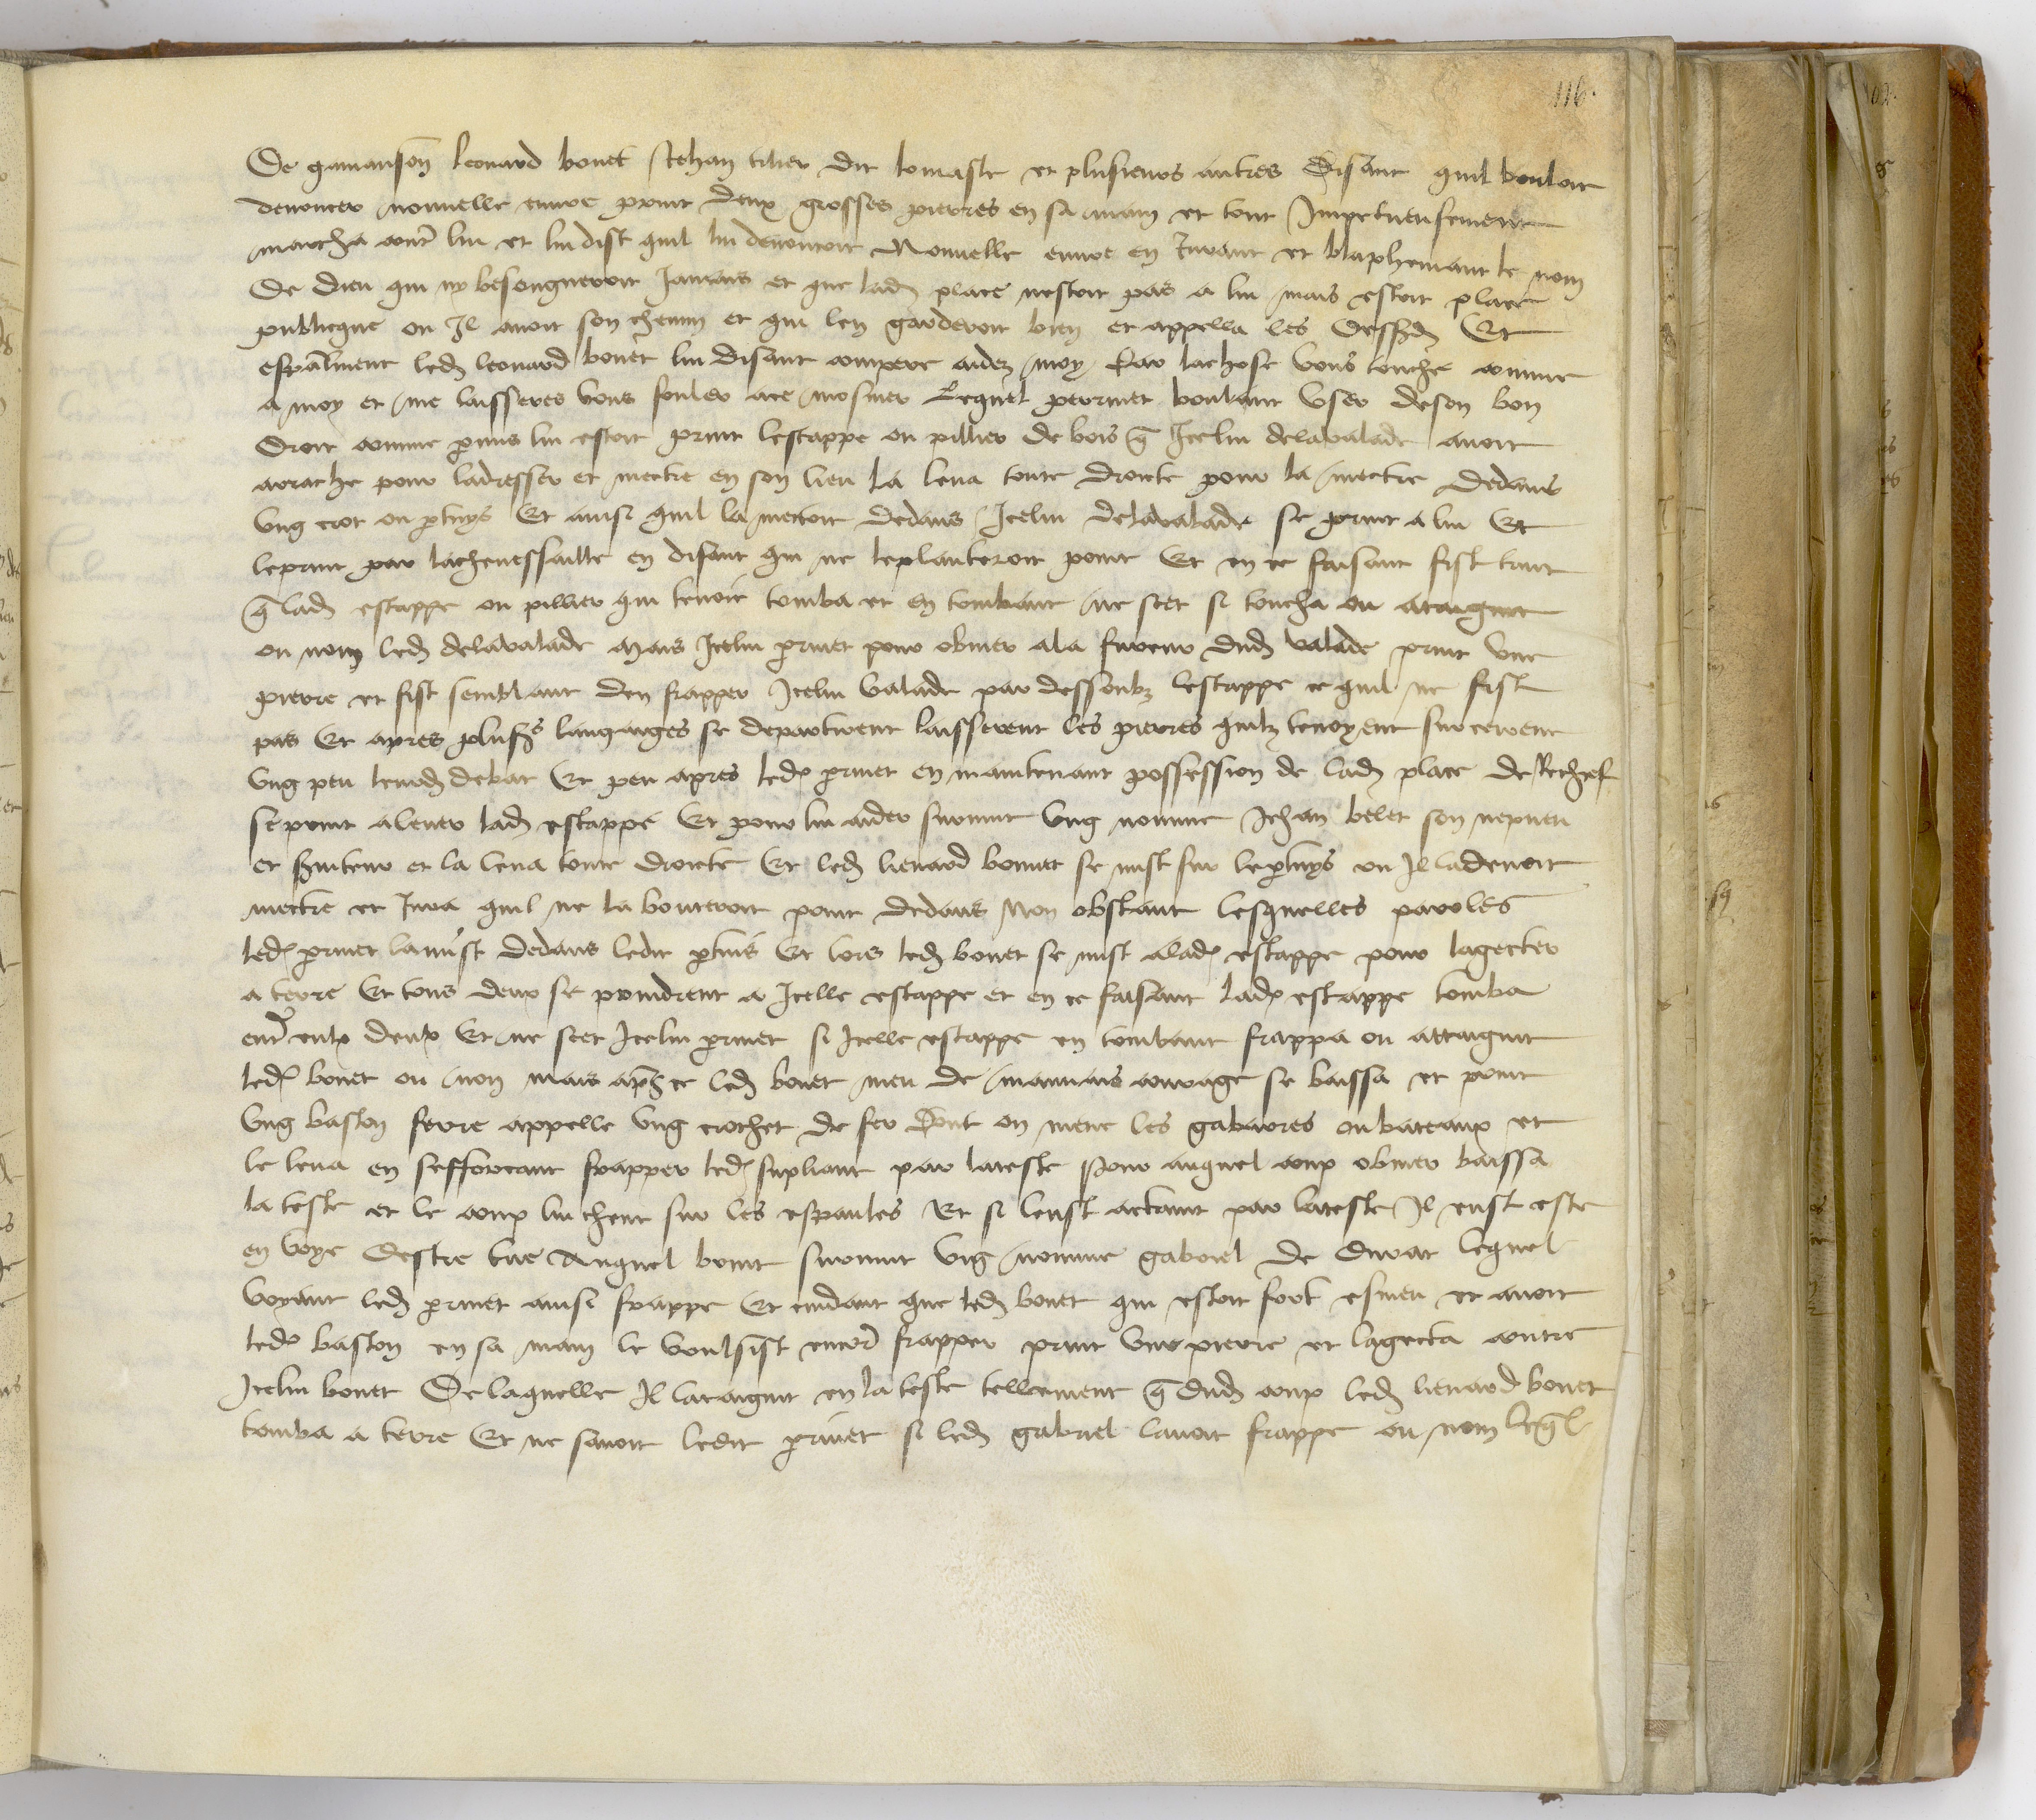 116.
De gamanson leonard bonet Jehan tilier dit lomaste et plusieurs autres disant quil vouloit
denoncer nouvelle euvre print deux grosses pierres en sa main et tout Impetueusement
marcha contre lui et lui dist quil lui denonçoit Nouvelle euvre en Jurant et blaphemant le nom
De dieu qui ny besongneroit Jamais et que lad place nestoit pas a lui mais estoit place
publicque ou Il avoit son chemin et qui len garderoit bien et appella les dessusd Et
espalment led leonard bonet lui disant compere aidez moy Car lachose vous touche comme
a moy et me laisseres vous fouler ace mosnier Lequel perrinet voulant User deson bon
Droit comme permis lui estoit print lestappe ou pillier de bois q Icelui delavalade avoit
arrache pour ladresser et mectre en son lieu La leva toute droicte pour la mectre dedans
Ung crot ou ptuys Et ainsi quil la mectoit dedans Icelui delavalade se print a lui Et
leprint par lachevessaille en disant qui ne leplanteroit point Et en ce faisant fist tant
q lad estappe ou pillier qui tenoit tomba et en tombant ne scet si toucha ou ataignit
ou nom led delavalade Mais Icelui prinet pour obvier ala fureur dud valade print une
pierre et fist semblant den frapper Icelui Valade par dessoubz lestappe ce quil ne fist
pas Et apres plusrs langaiges se departirent laisserent les pierres quilz tenoyent surcerent
Ung peu leurd debat Et peu apres led prinet en maintenant possession de lad place de Rechief
seprint alever lad estappe Et pour lui aider survint Ung nomme Jehan belet son nepveu
et serviteur et la leva toute droicte Et led lienard bonnet se mist sur leptuys ou Il ladevoit
mectre et Jura quil ne la bouteroit point dedans Non obstant lesquelles paroles
led prinet lamist dedans ledit ptuis Et lors led bonet se mist alad estappe pour lagecter
a terre Et tous deux se prindrent a Icelle estappe et en ce faisant lad estappe tomba
entre eulx deux Et ne scet Icelui prinet si Icelle estappe en tombant frappa ou attaignit
led bonet ou non mais apres ce led bonet meu de mauvais courage se baissa et print
Ung baston ferre appelle Ung crochet de fer dont on mene les gabarres ou bateaux et
le leva en sefforcant frapper led supliant par lateste Pour auquel coup obvier baissa
la teste et le coup lui cheut sur les espaules Et si leust actaint par lateste Il eust este
en voye destre tue Auquel bruit survint Ung nomme gabriel de durat lequel
voyant led prinet ainsi frappe Et cuidant que led bonet qui estoit fort esmeu et avoit
led baston en sa main le voulsist encor frapper print une pierre et lagecta contre
Icelui bonet De laquelle Il lataignit en la teste tellement q dud coup led lienard bonet
tomba a terre Et ne savoit ledit prinet si led gabriel lavoit frappe ou nom leql